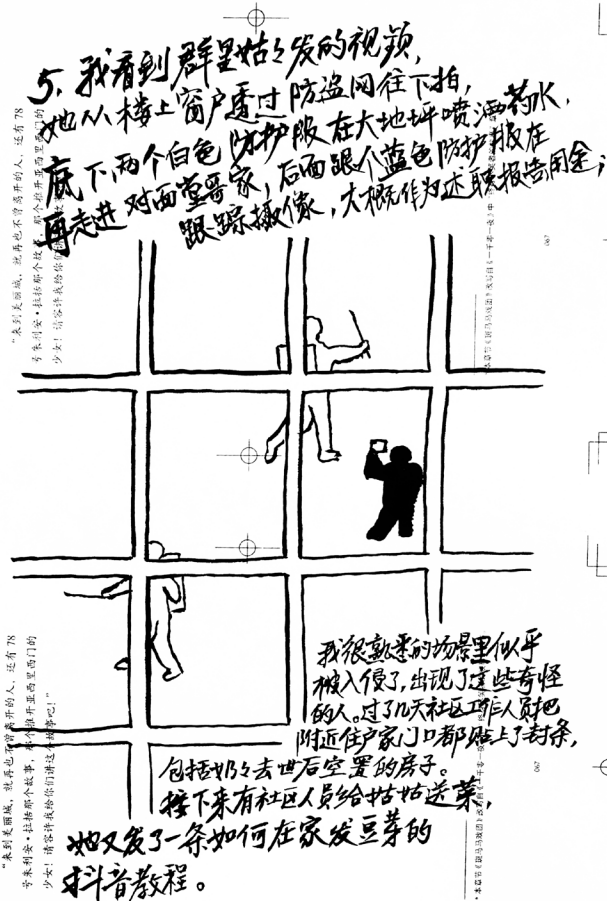 5. 我看到群里姑々发的视频，
她从楼上窗户透过防盗网往下拍，
底下两个白色防护服在大地坪喷洒药水，
再走进对面堂哥家，后面跟个蓝色防护服在
跟踪摄像，大概作为述职报告用金；
"来到美丽城，就再也不曾离开的人，还有78
号朱利安·拉括那个故事，那个推开亚西里西门的
少女！请容许我给你们讲
067
*本章节《斑马马戏团》改写自《一千零一夜》中
我很熟悉的场景里似乎
被入侵了，出现了这些奇怪
的人。过了几天社区工作人员把
附近住户家门口都贴上了封条，
包括奶々去世后空置的房子。
接下来有社区人员给姑姑送菜，
她又发了一条如何在家发豆芽的
抖音教程。
"来到美丽城，就再也不曾离开的人，还有78
号朱利安·拉括那个故事，那个推开亚西里西门的
少女！请容许我给你们讲这个故事吧！"
067
*本章节《斑马马戏团》改写自《一千零一夜